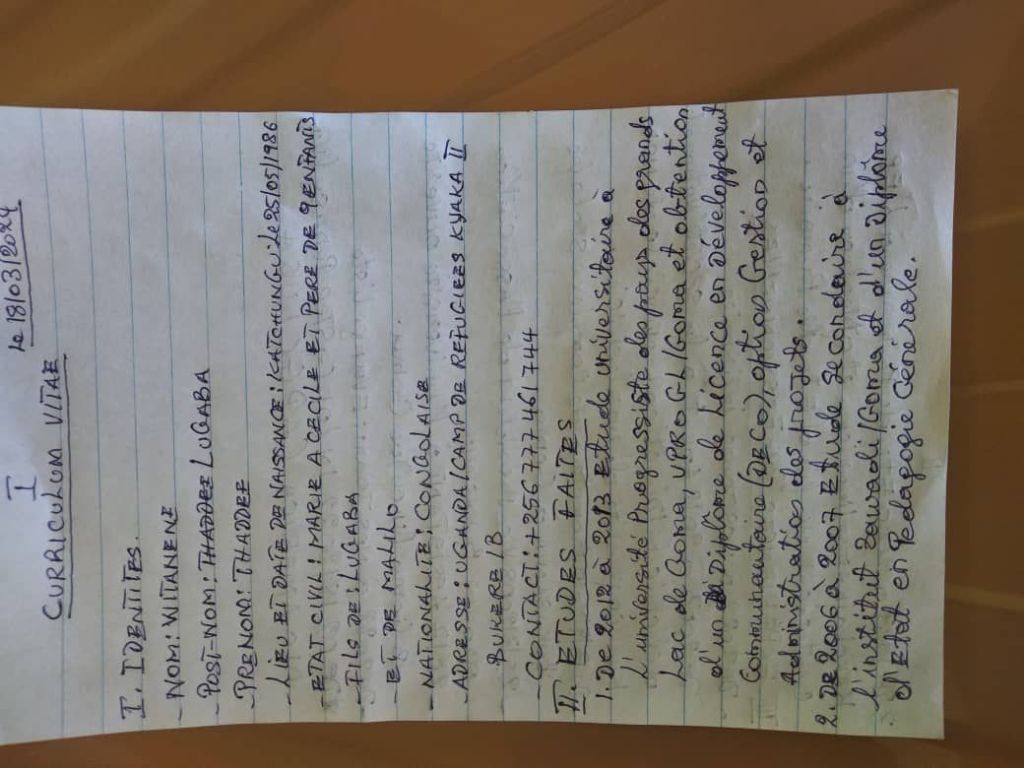 I
le 18/03/2024
CURRICULUM VITAE
I. IDENTITES.
- NOM: WITANENE
- POST-NOM: THADDEE LUGABA
- PRENOM: THADDEE
- LIEU ET DATE DE NAISSANCE: KATCHUNGU Le 25/05/1986
ETAT CIVIL: MARIE A CECILE ET PERE DE 9 ENFANTS
- FILS DE: LUGABA
- ET DE MALILO
- NATIONALITE: CONGOLAISE
- ADRESSE: UGANDA/CAMP DE REFUGIEES KYAKA II
BUKERE 1B
- CONTACT: +256777461744
II. ETUDES FAITES
1. De 2012 à 2013 Etude universitaire à
L'université Progressiste des pays des grands
Lac de Goma, UPRO GL/Goma et obtention
d'un Diplôme de Licence en Développement
Communautaire (DECO), option Gestion et
Administration des projets.
2. De 2006 à 2007 Etude secondaire à
l'institut Zanradi/Goma et d'un Diplôme
d'Etat en Pédagogie Générale.